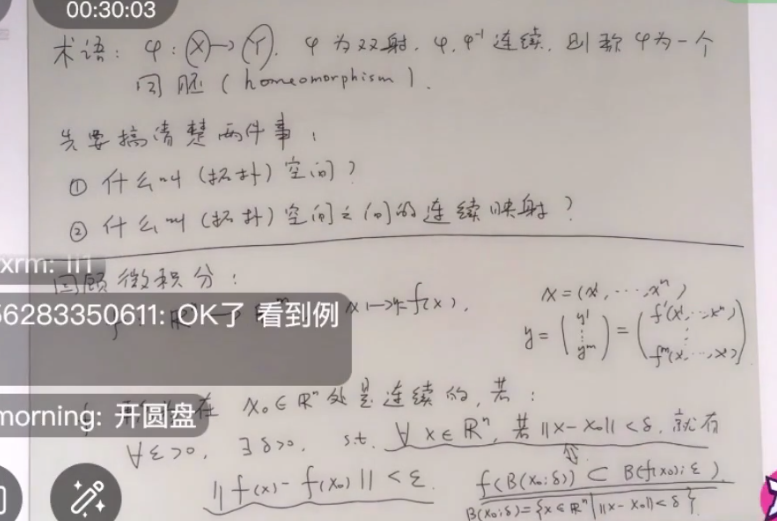 00:30:03
术语: φ: X → Y. φ为双射. φ, φ⁻¹ 连续. 则称 φ为一个
同胚 (homeomorphism).
先要搞清楚两件事:
① 什么叫 (拓扑) 空间?
② 什么叫 (拓扑) 空间之间的连续映射?
xrm: 111
回顾微积分:
56283350611: OK了 看到例
x ↦ f(x).
x = (x¹, ..., xⁿ)
y = (y¹ ⋮ yᵐ) = (f¹(x¹, ..., xⁿ) ⋮ fᵐ(x¹, ..., xⁿ))
morning: 开圆盘
在 x₀ ∈ ℝⁿ 处是连续的, 若:
∀ε>0, ∃δ>0, s.t. ∀ x ∈ ℝⁿ, 若 ||x - x₀|| < δ, 就有
||f(x) - f(x₀)|| < ε. f(B(x₀; δ)) ⊂ B(f(x₀); ε).
B(x₀; δ) = {x ∈ ℝⁿ | ||x - x₀|| < δ}